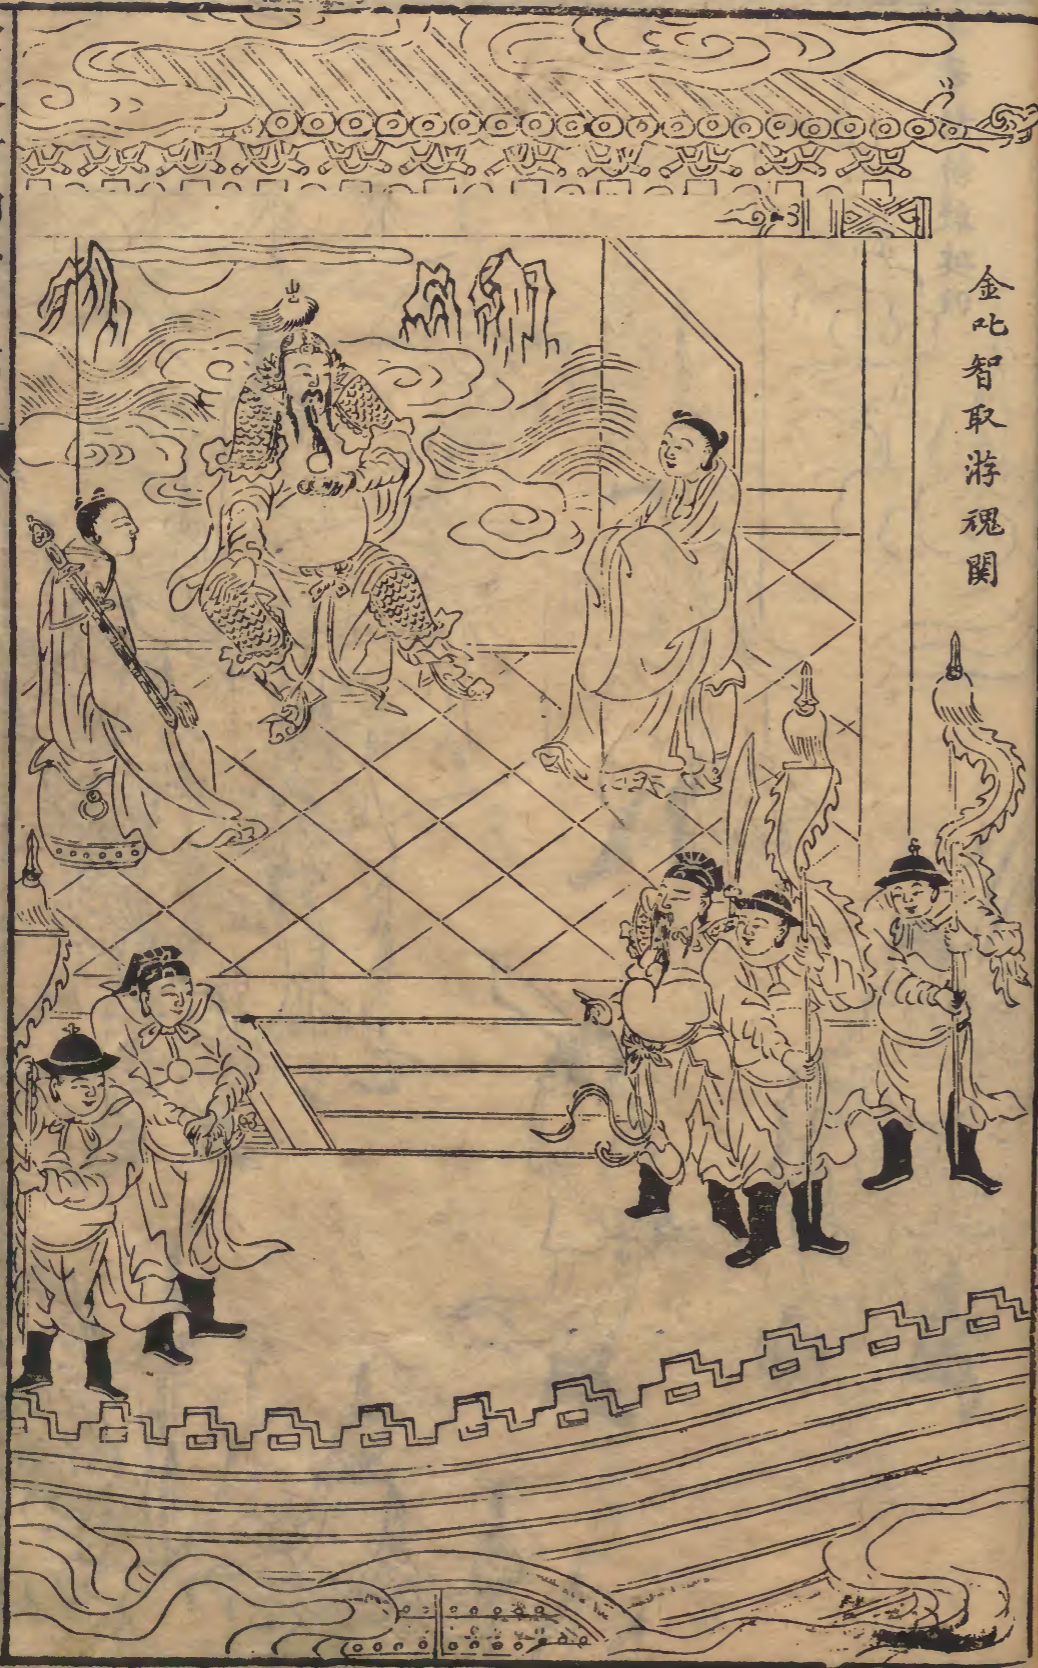 金吒智取游魂関